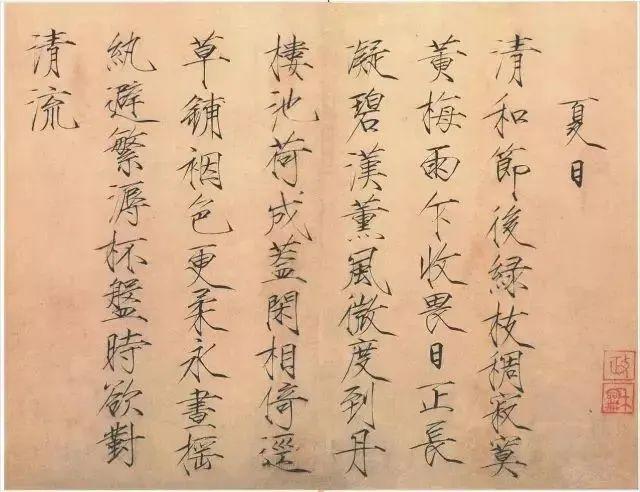 夏日
清和節後緑枝稠寂寞
黃梅雨乍收畏日正長
凝碧漢薰風微度到丹
樓池荷成蓋閑相倚逕
草鋪裀色更柔永晝搖
紈避繁溽杯盤時欲對
清流
政和